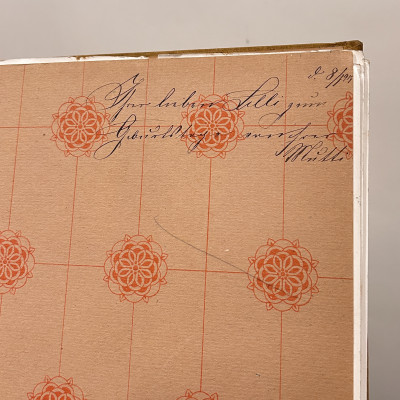 d. 8/
Ihrer lieben Lilli zum
Geburtstage von ihrer
Mutti